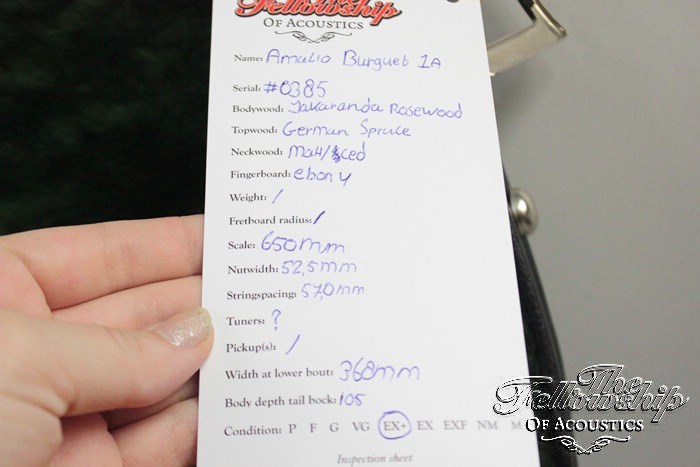 Fellowship
OF ACOUSTICS
Name: Amalio Burguet 1A
Serial: #0385
Bodywood: Jakaranda Rosewood
Topwood: German Spruce
Neckwood: Mah/ced
Fingerboard: ebony
Weight: /
Fretboard radius: /
Scale: 650mm
Nutwidth: 52,5mm
Stringspacing: 57,0mm
Tuners: ?
Pickup(s): /
Width at lower bout: 368mm
Body depth tail bock: 105
Condition: P F G VG EX+ EX EXF NM M
Inspection sheet
The
Fellowship
OF ACOUSTICS